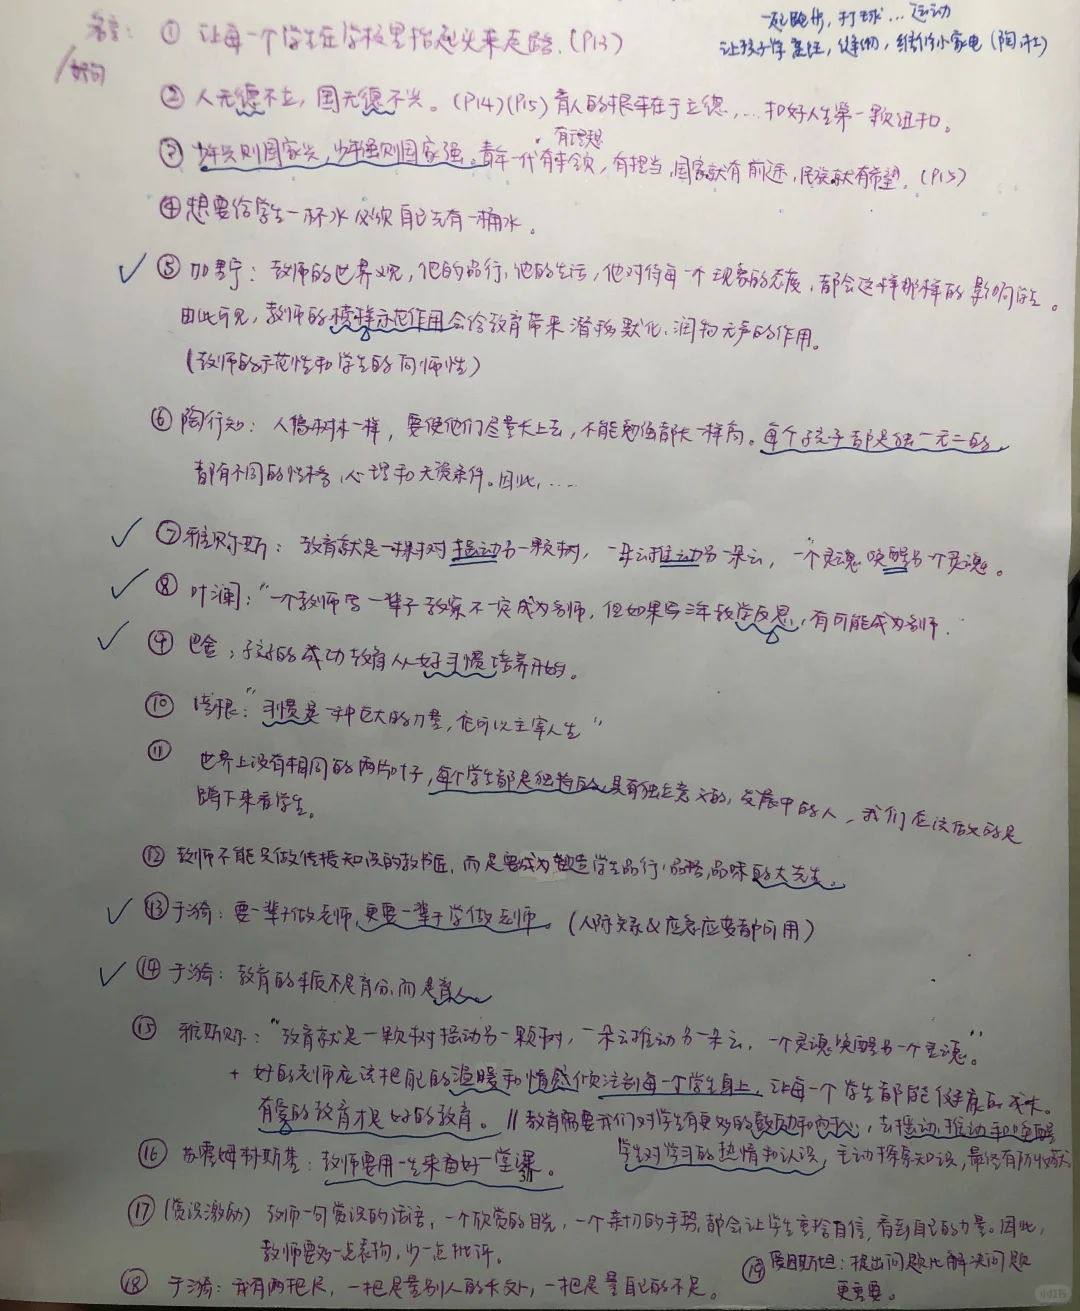 一起跑步，打球…运动
让孩子学煮饭，缝纫，维修小家电（陶，杜）
名言：① 让每一个学生在学校里抬起头来走路.（P13）
/好句
② 人无德不立，国无德不兴。（P14）（P15）育人的根本在于立德，…扣好人生第一颗纽扣。
③ 少年兴则国家兴，少年强则国家强。青年一代有理想有本领，有担当，国家就有前途，民族就有希望.（P15）
④ 想要给学生一杯水必须自己先有一桶水。
⑤ 加里宁：教师的世界观，他的品行，他的生活，他对待每一个现象的态度，都会这样那样的影响学生。
由此可见，教师的榜样示范作用会给教育带来潜移默化、润物无声的作用。
（教师的示范性和学生的向师性）
⑥ 陶行知：人像树木一样，要使他们尽量长上去，不能勉强都长一样高。每个孩子都是独一无二的
都有不同的性格，心理和天资条件。因此，……
⑦ 雅贝尔斯：教育就是一棵树摇动另一颗树，一朵云推动另一朵云，一个灵魂唤醒另一个灵魂。
⑧ 叶澜：“一个教师写一辈子教案不一定成为名师，但如果写三年教学反思，有可能成为名师.
⑨ 巴金：孩子的成功教育从好习惯培养开始。
⑩ 培根：“习惯是一种巨大的力量，它可以主宰人生”
⑪ 世界上没有相同的两片叶子，每个学生都是独特的，具有独立意义的，发展中的人，我们应该做的是
蹲下来看学生。
⑫ 教师不能只做传授知识的教书匠，而是要成为塑造学生品行，品格，品味的大先生。
⑬ 于漪：要一辈子做老师，更要一辈子学做老师。（人际关系&应急应变都可用）
⑭ 于漪：教育的本质不是育分，而是育人
⑮ 雅斯贝尔：“教育就是一颗树摇动另一颗树，一朵云推动另一朵云，一个灵魂唤醒另一个灵魂”。
+ 好的老师应该把自己的温暖和情感倾注到每一个学生身上，让每一个学生都能健康的成长。
有爱的教育才是好的教育。// 教育需要我们对学生有更多的鼓励和耐心，去摇动，推动和唤醒
学生对学习的热情和认识，主动探索知识，最终有所收获
⑯ 苏霍姆林斯基：教师要用一生来备好一堂课。
⑰（赏识激励）教师一句赏识的话语，一个欣赏的目光，一个亲切的手势，都会让学生重拾自信，看到自己的力量。因此，
教师要多一点表扬，少一点批评。
⑱ 于漪：我有两把尺，一把是量别人的长处，一把是量自己的不足。
⑲ 爱因斯坦：提出问题比解决问题
更重要。